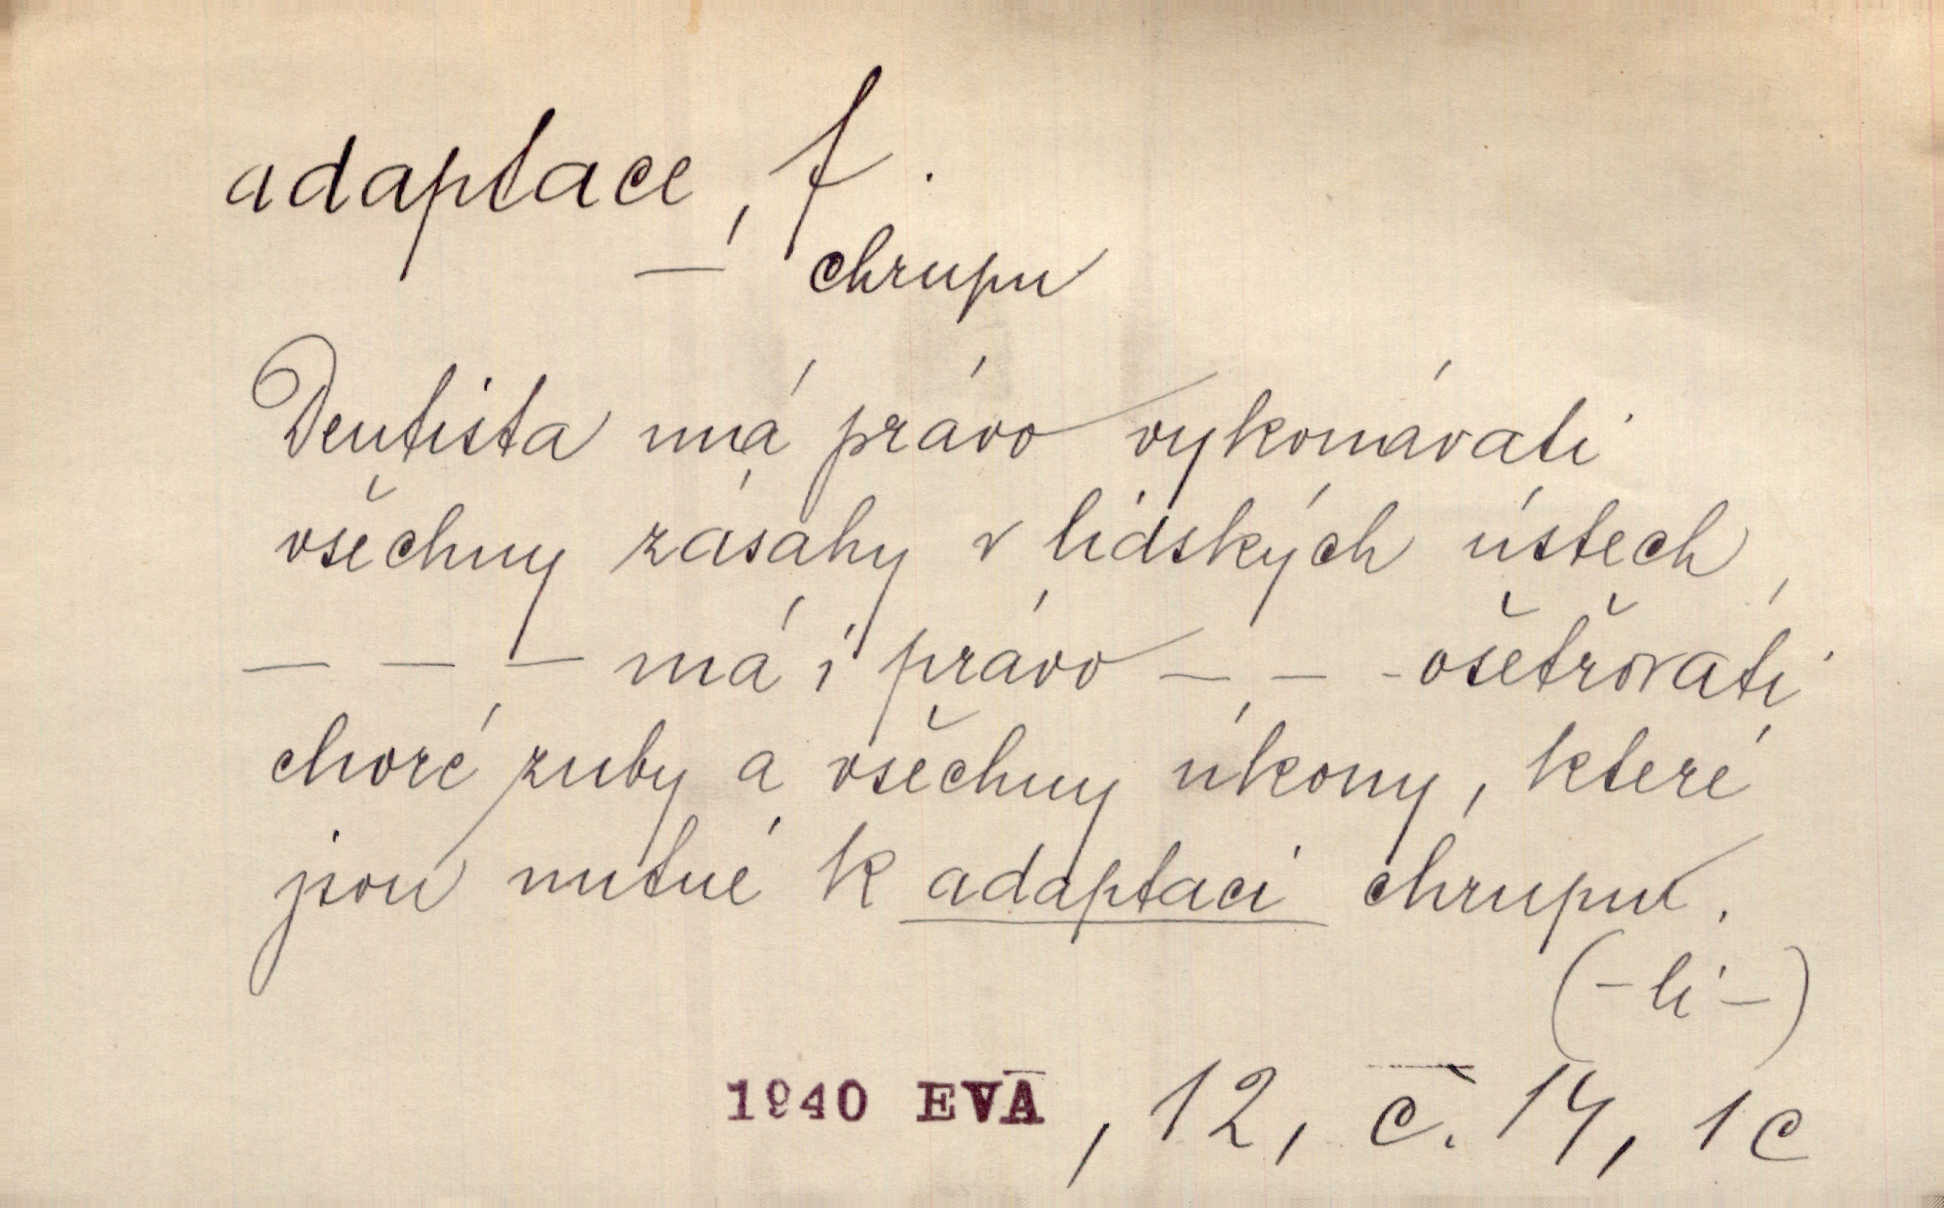 adaptace, f.
— chrupu
Dentista má právo vykonávati
všechny zásahy v lidských ústech,
— — — má i právo — — - ošetřovati
choré zuby a všechny úkony, které
jsou nutné k adaptaci chrupu.
(-li-)
1940 EVA, 12, č. 14, 1c